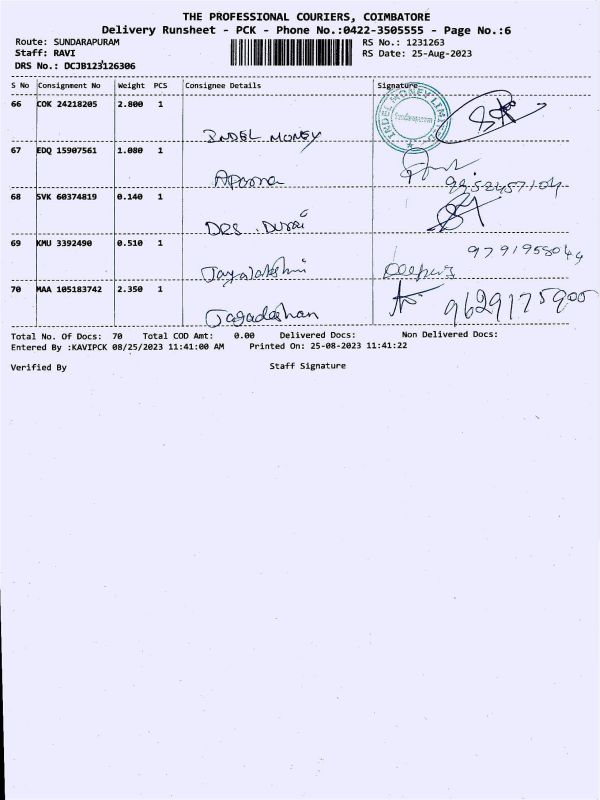 THE PROFESSIONAL COURIERS, COIMBATORE
Delivery Runsheet - PCK - Phone No.:0422-3505555 - Page No.:6
Route: SUNDARAPURAM RS No.: 1231263
Staff: RAVI RS Date: 25-Aug-2023
DRS No.: DCJB123126306
S No Consignment No Weight PCS Consignee Details Signature
66 COK 24218205 2.800 1
INDEL MONEY
INDEL MONEY LIMITED
Sundarapuram
67 EDQ 15907561 1.080 1
Apoorna
9952457104
68 SVK 60374819 0.140 1
DRS. Durai
69 KMU 3392490 0.510 1
Jayalakshmi 9791958044
70 MAA 105183742 2.350 1
Jagadeshan 9629175900
Total No. Of Docs: 70 Total COD Amt: 0.00 Delivered Docs: Non Delivered Docs:
Entered By :KAVIPCK 08/25/2023 11:41:00 AM Printed On: 25-08-2023 11:41:22
Verified By Staff Signature